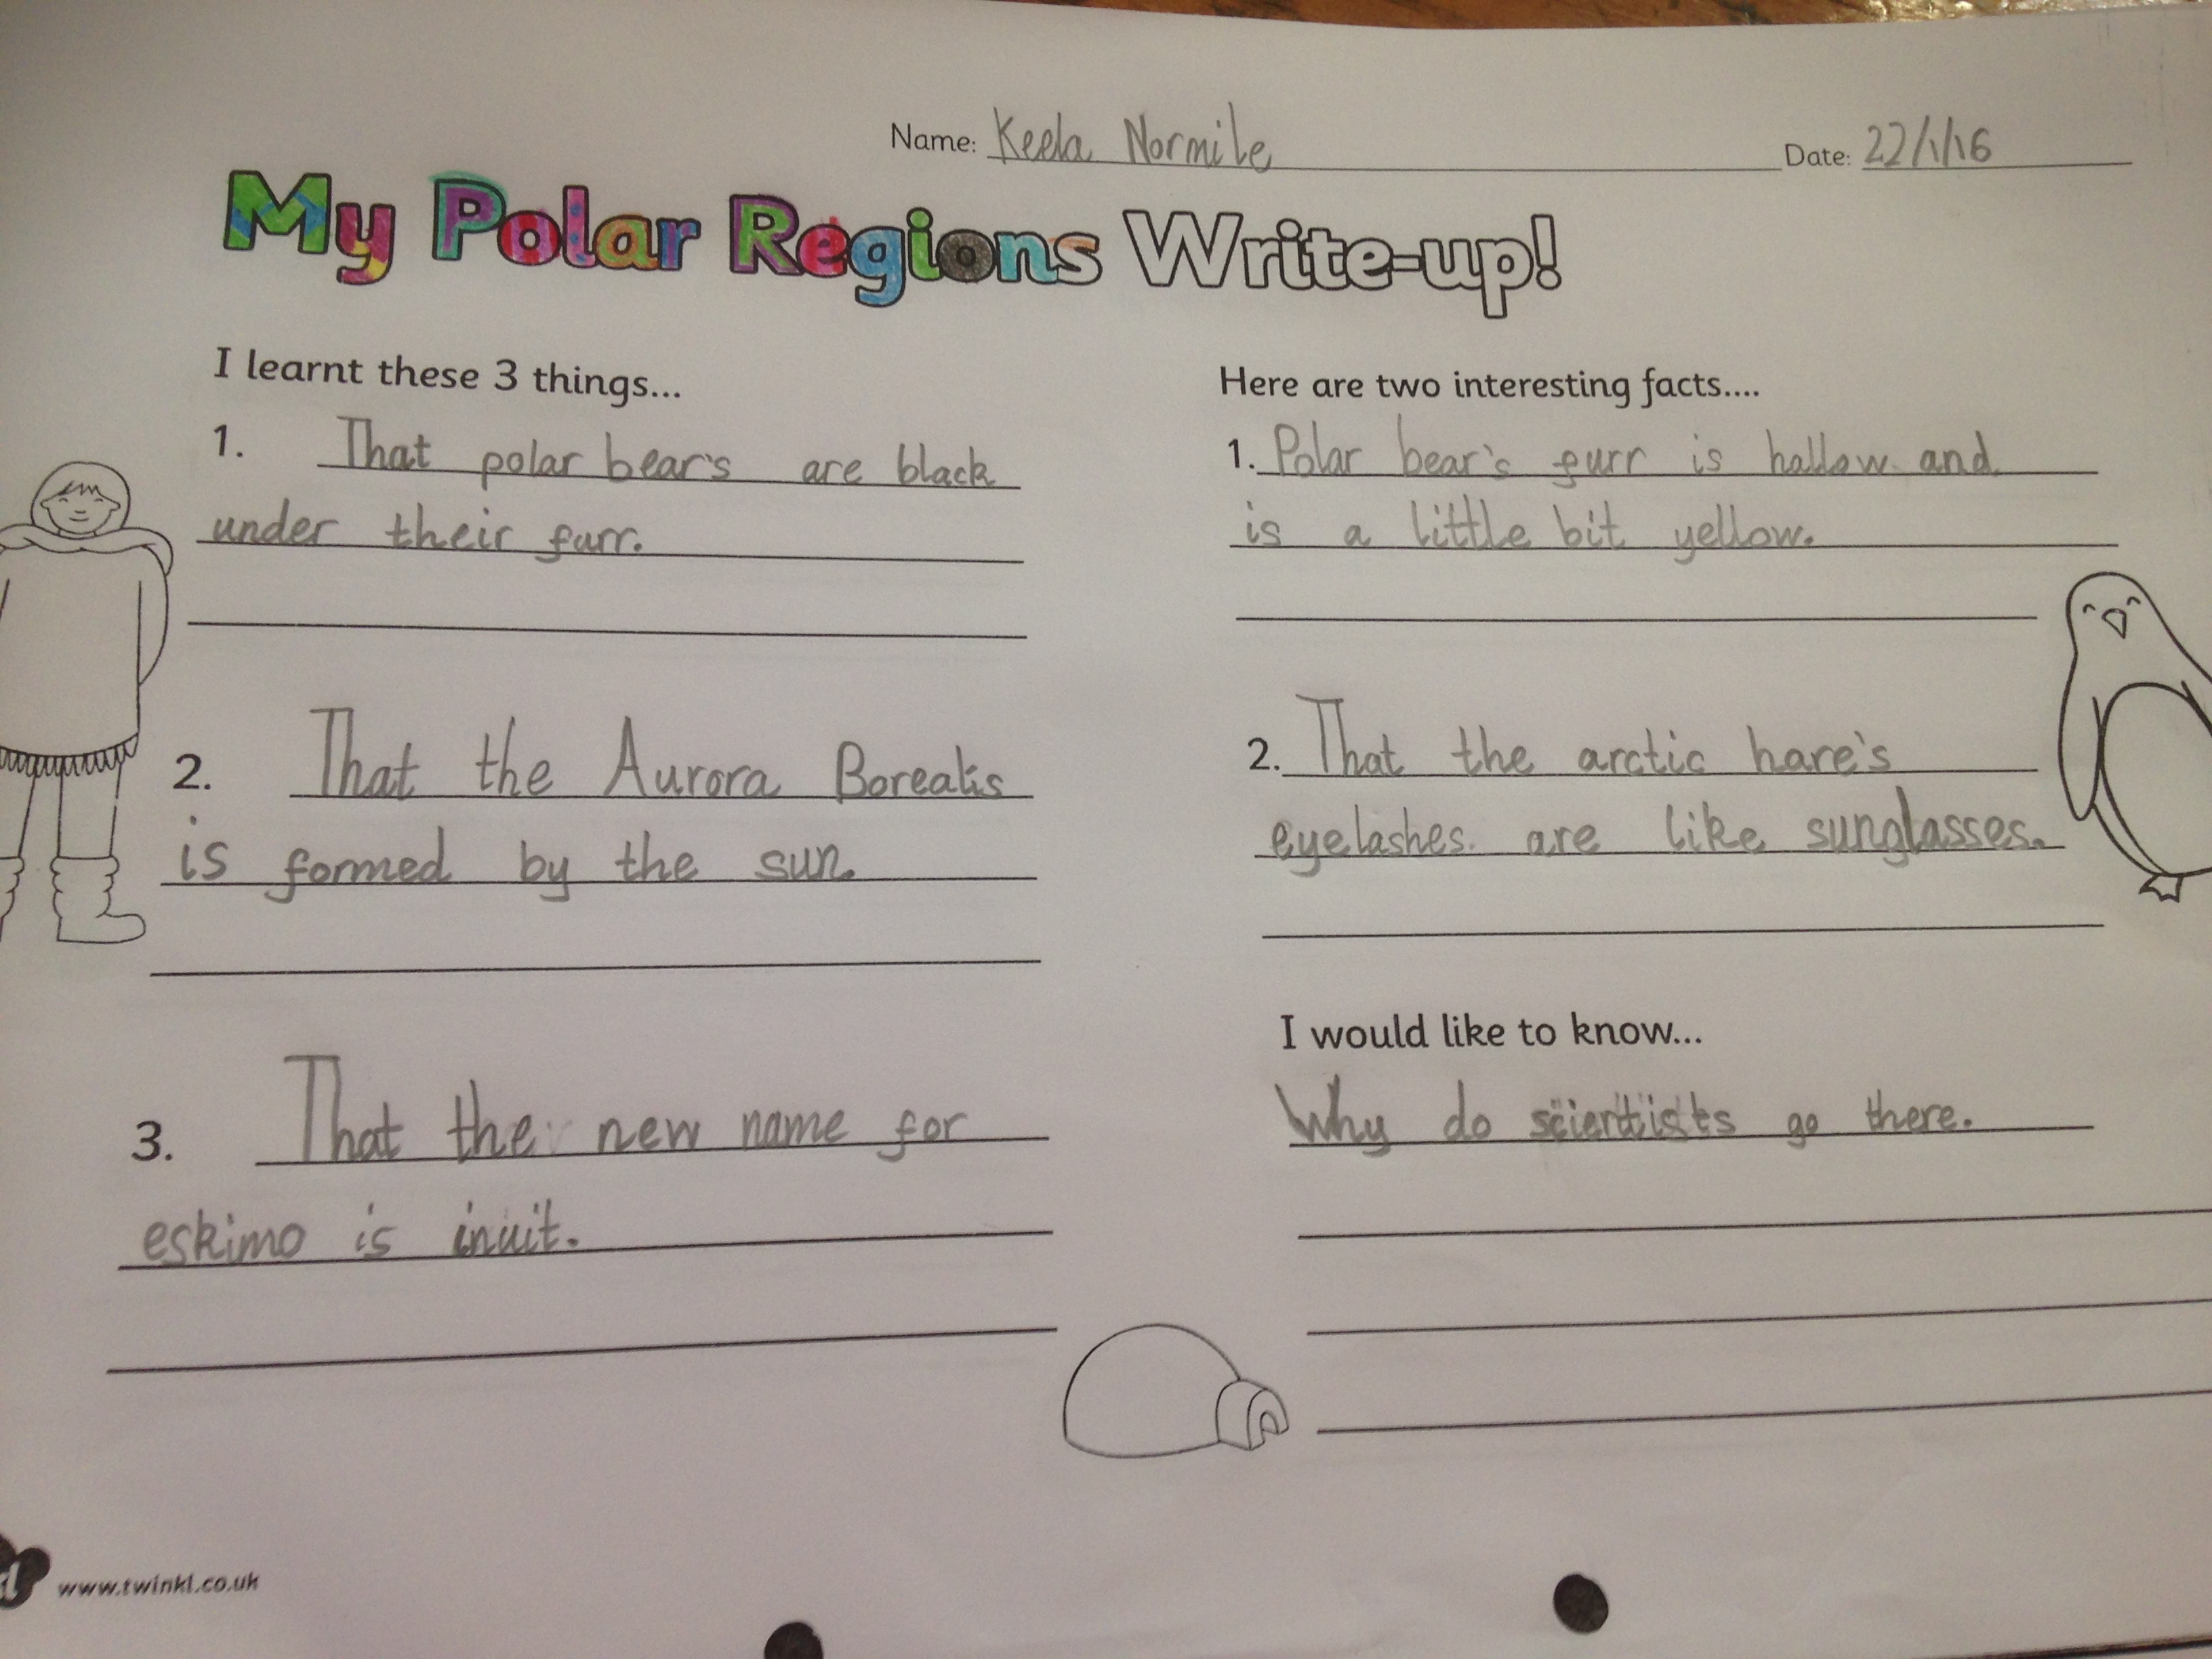 Name: Keela Normile Date: 22/1/16
My Polar Regions Write-up!
I learnt these 3 things...
1. That polar bear's are black
under their furr.
2. That the Aurora Borealis
is formed by the sun.
3. That the new name for
eskimo is inuit.
Here are two interesting facts....
1. Polar bear's furr is hallow and
is a little bit yellow.
2. That the arctic hare's
eyelashes are like sunglasses.
I would like to know...
Why do scientists go there.
www.twinkl.co.uk